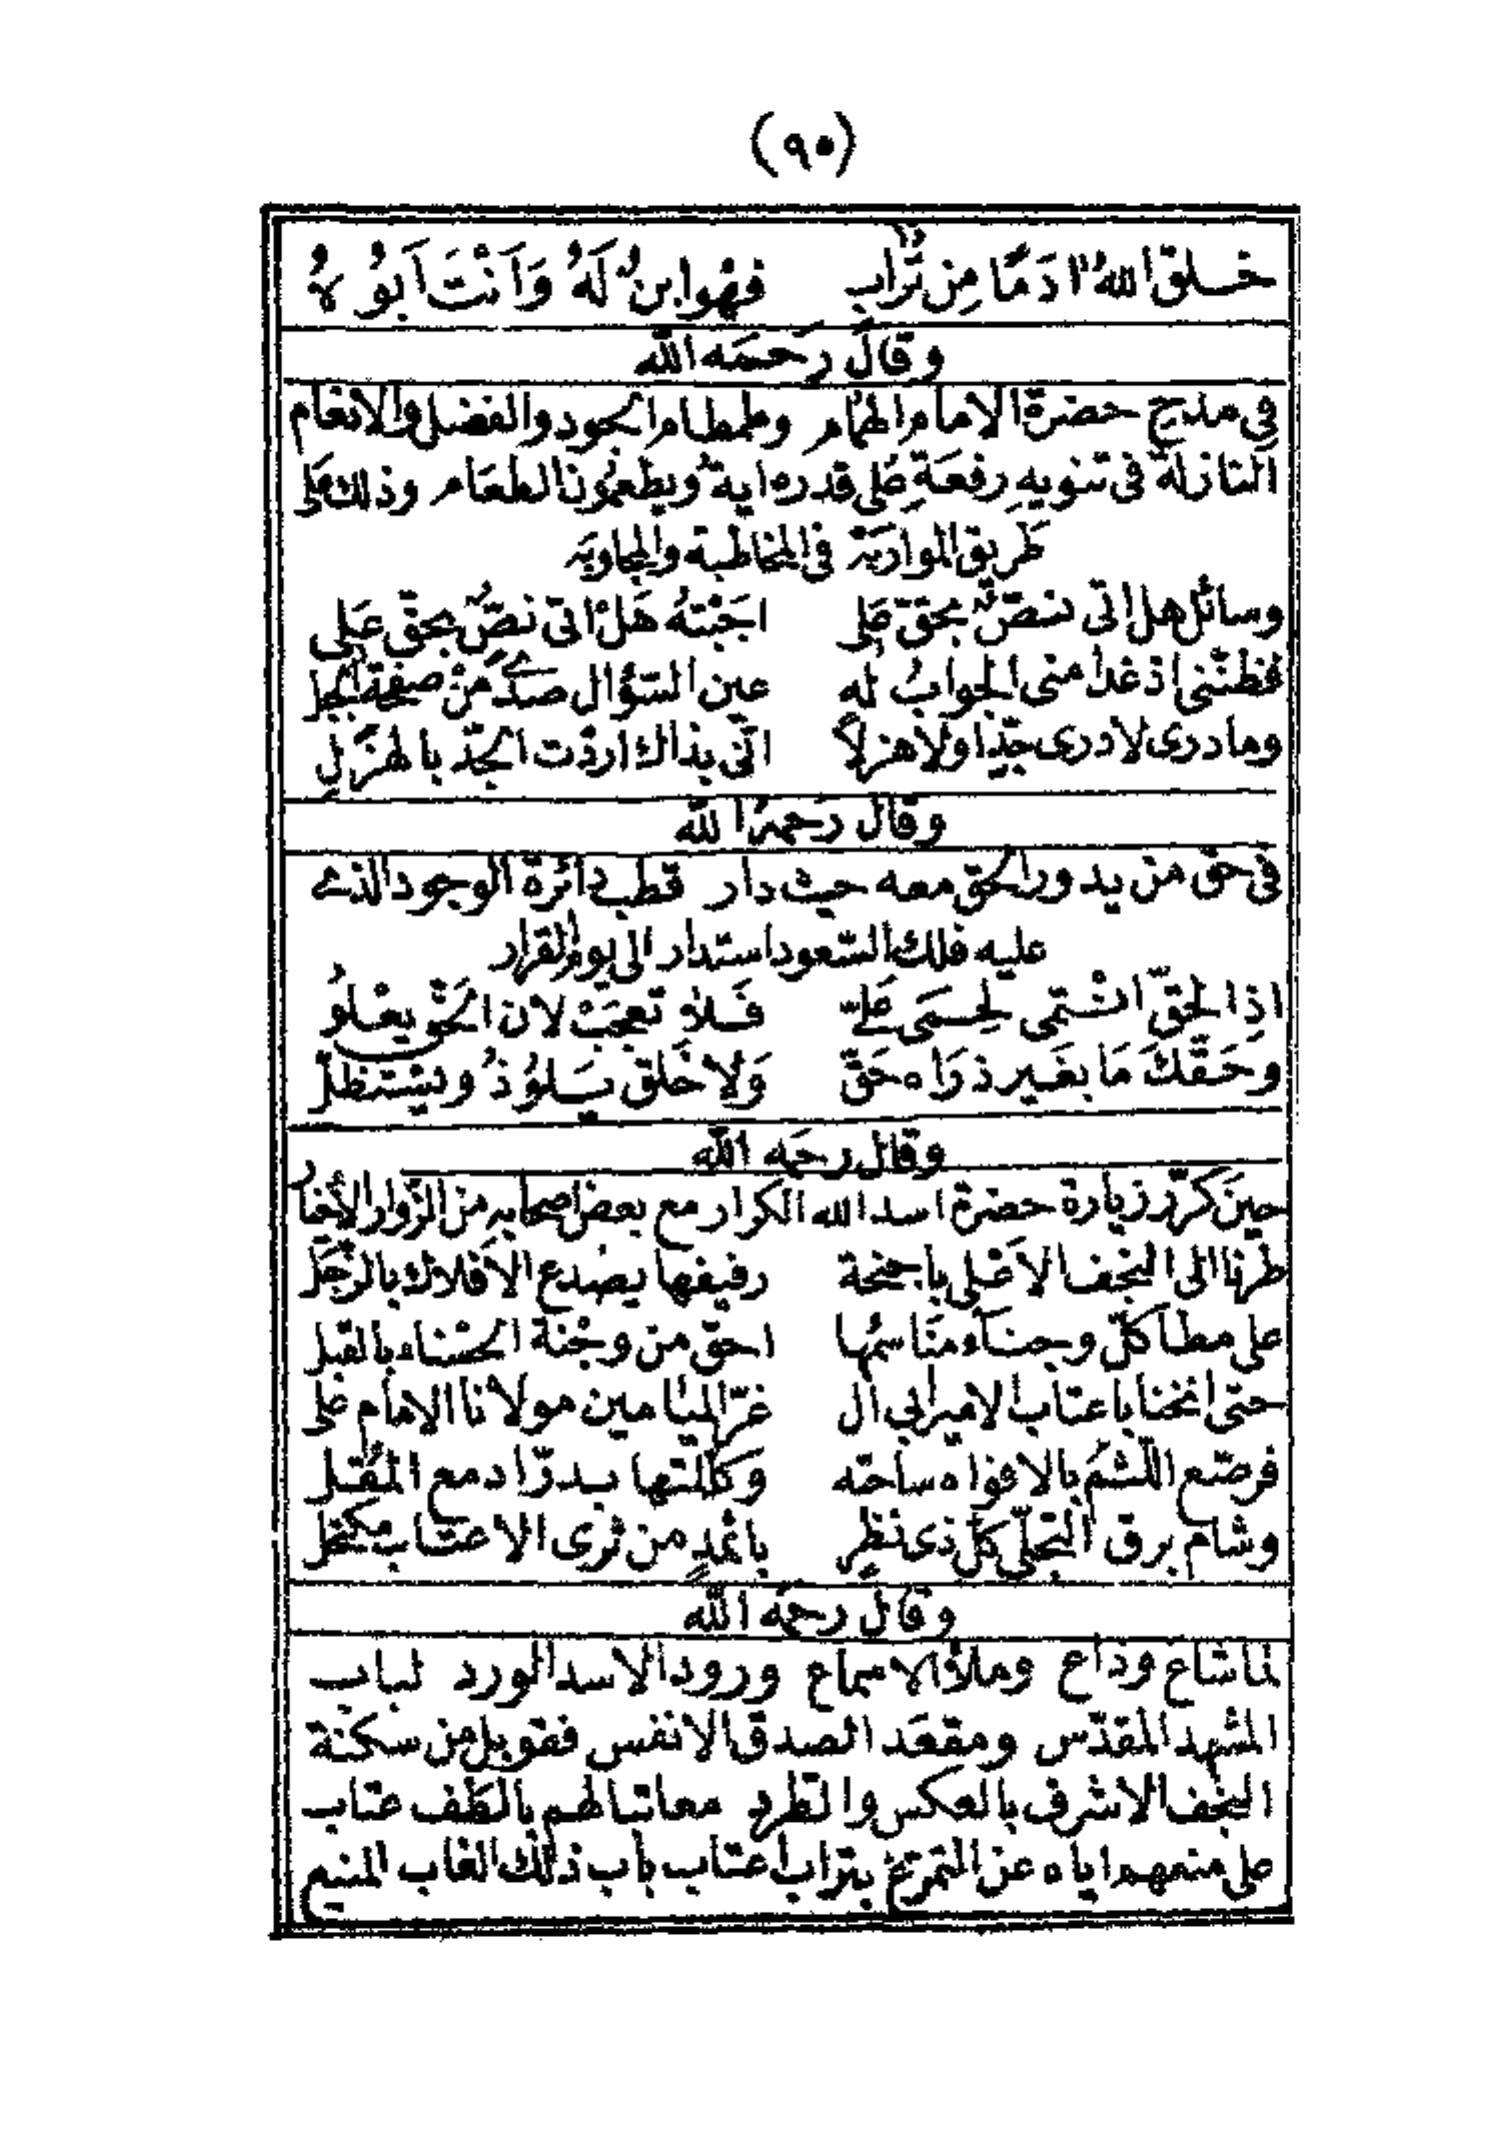 (٩٠)
خلق اللهُ ادَمًا مِن تُرابٍ فهْوا بنٌ لَهُ وَاَنْتَ اَبوُهُ
وقالَ رَحمَه الله
في مديح حضرة الامام الهمام وطمطام الجود والفضل والانعام
النازلة فى تنويهِ رفعَةِ على قدره اية ويطعمون الطعَام وذلك على
طريق المواربَة فى المخاطبة والمجاوبَه
وسائل هل اتى نصّ بحقّ عَلى اجَبْتهُ هَلْ اتى نصٌّ بحقّ عَلى
فظنّنى اذ غدا منى الجوابُ له عين السّؤال صدًى مَنْ صفحة الجبل
وما درى لا درى جدّا ولا هزلاً انّنى بذاك اردت الجدّ بالهزَلِ
وقال رَحمهُ الله
فى حق من يدور الحق معه حيث دار قطب دائرة الوجود الذى
عليه فلك السّعود استدار الى يوم القرار
اذِا الحقّ انْتمى لحِمَى عَلىّ فَلاَ تعجَبْ لان الحقّ يعْلوُ
وحَقّكَ مَا بغَيرِ ذرَاه حَقّ وَلا خَلق يَلوُذُ ويسْتظلّ
وقال رحمَه الله
حينَ كرّر زيارة حضرة اسد الله الكرار مع بعض اصحابهِ من الزّوار الأخيار
طرنا الى النجف الاَعْلى باجنحة رفيفها يصْدع الافلاك بالزّجَل
على مطا كلّ وجنآء مَناسمُها احقّ من وجْنة الحسْناء بالقبل
حتى انخنا باعتاب الامير ابى ال غرّ الميَامين مولانا الامام على
فرصّع اللّثمُ بالافواه ساحته وَكلّلتها بدرّ ادمع المُقَل
وشام برق التجلّى كلّ ذى نظرٍ باثمدٍ من ثرى الأعتاب مكتحل
وقالَ رحمَه الله
لما شاع وذاع وملأ الاسماع ورود الاسد الورد لباب
المشهد المقدّس ومقعَد الصدق الانفس فقوبل من سكنة
النجف الاشرف بالعكس والطرد معاتبا لهم بالطف عتاب
على منعهم اياه عن التمرّغ بتراب اعتاب باب ذلك الغاب المنيع